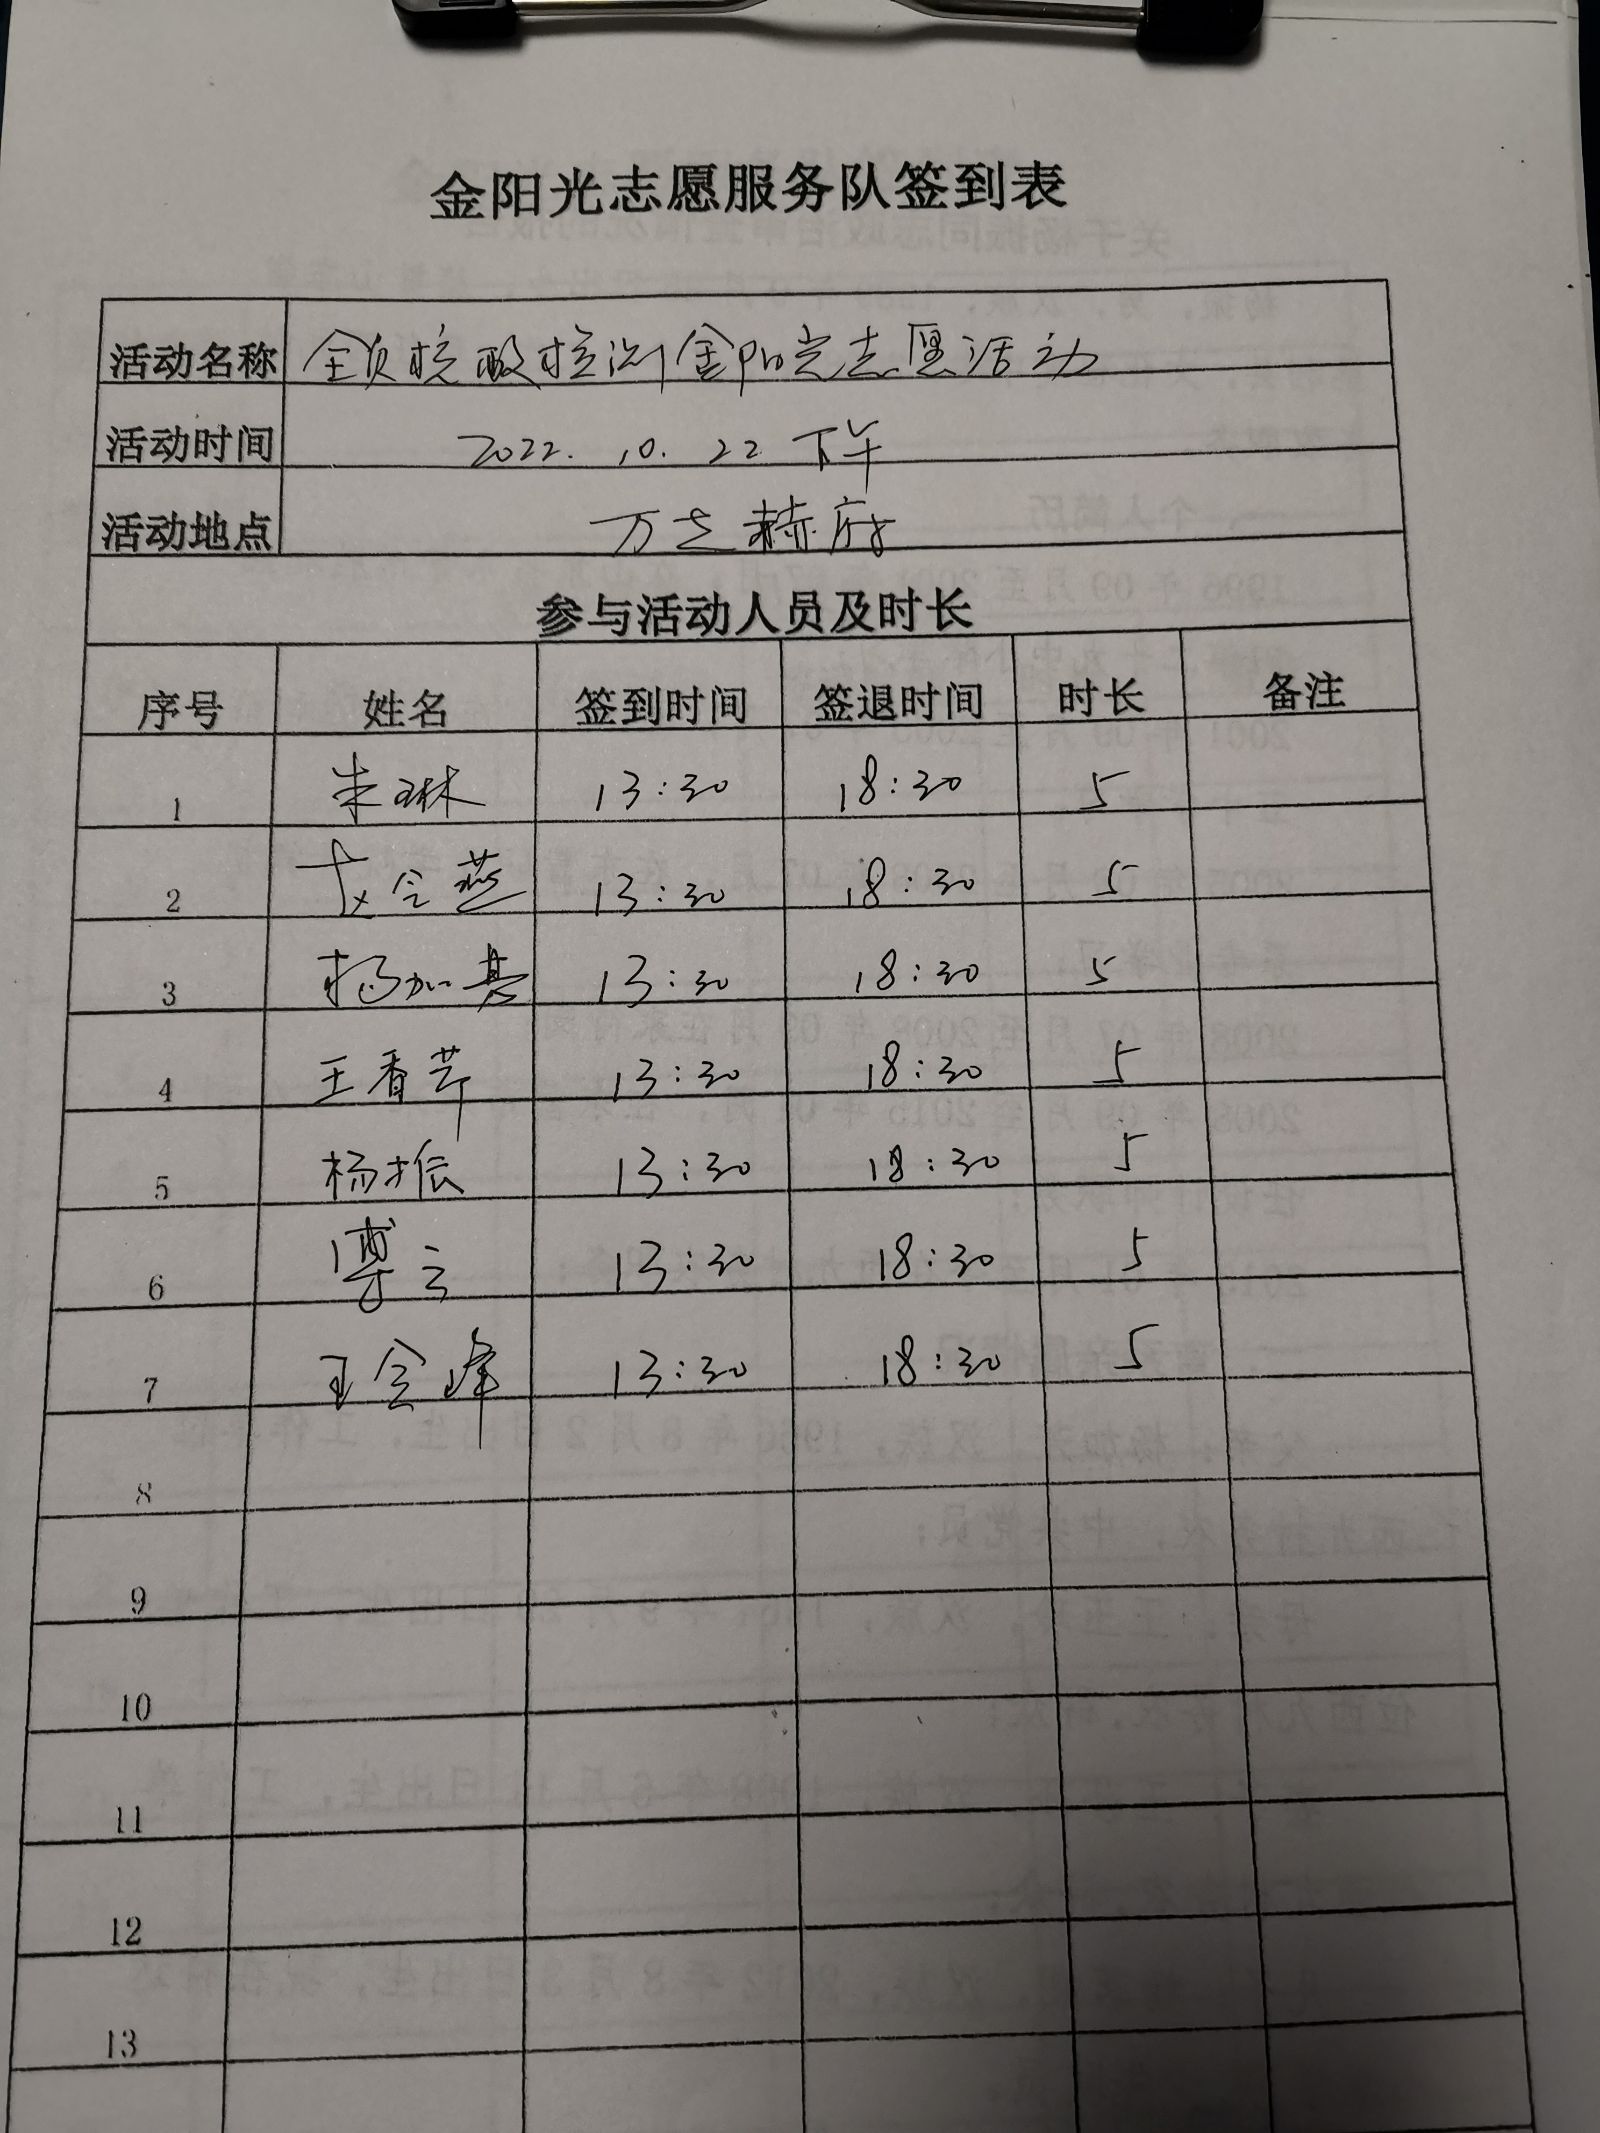 金阳光志愿服务队签到表
活动名称 全员核酸检测金阳光志愿活动
活动时间 2022.10.22 下午
活动地点 万之赫府
参与活动人员及时长
序号 姓名 签到时间 签退时间 时长 备注
1 朱琳 13:30 18:30 5
2 13:30 18:30 5
3 13:30 18:30 5
4 王香芹 13:30 18:30 5
5 杨振 13:30 18:30 5
6 13:30 18:30 5
7 王会峰 13:30 18:30 5
8
9
10
11
12
13